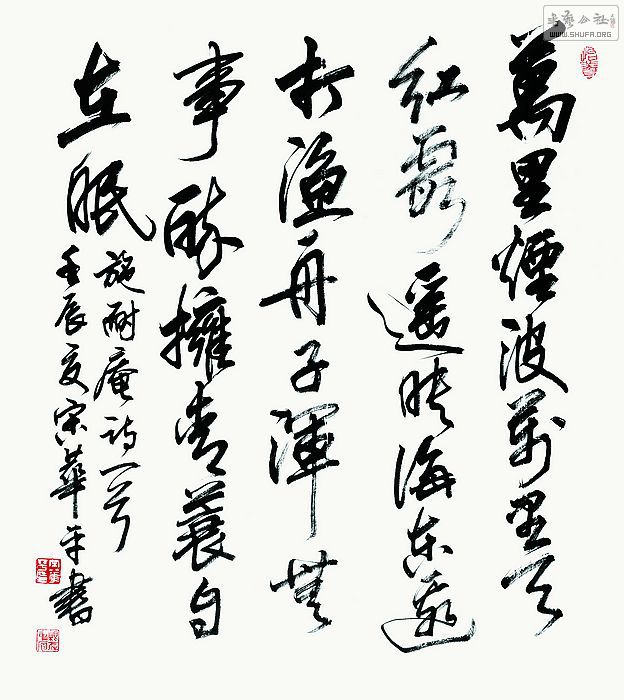 萬里煙波萬里天
紅霞遥映海東邊
打漁舟子渾無
事醉擁青蓑自
在眠
施耐庵詩一首
壬辰夏宋華平書
书艺公社
WWW.SHUFA.ORG